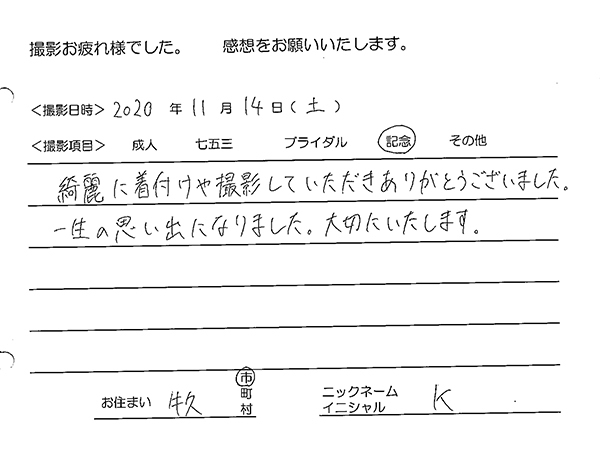 撮影お疲れ様でした。 感想をお願いいたします。
<撮影日時> 2020 年 11 月 14 日 (土)
<撮影項目> 成人 七五三 ブライダル 記念 その他
綺麗に着付けや撮影していただきありがとうございました。
一生の思い出になりました。大切にいたします。
お住まい 牛久 市 町 村
ニックネーム イニシャル K